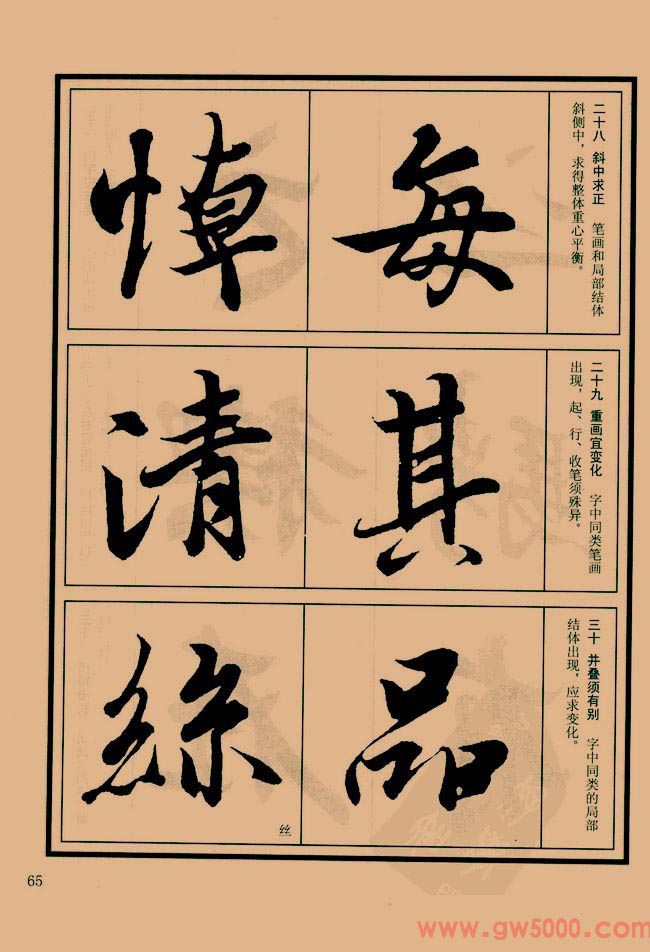 二十八 斜中求正 笔画和局部结体
斜侧中，求得整体重心平衡。
每
悼
二十九 重画宜变化 字中同类笔画
出现，起、行、收笔须殊异。
其
清
三十 并叠须有别 字中同类的局部
结体出现，应求变化。
品
絲
丝
65
www.gw5000.com